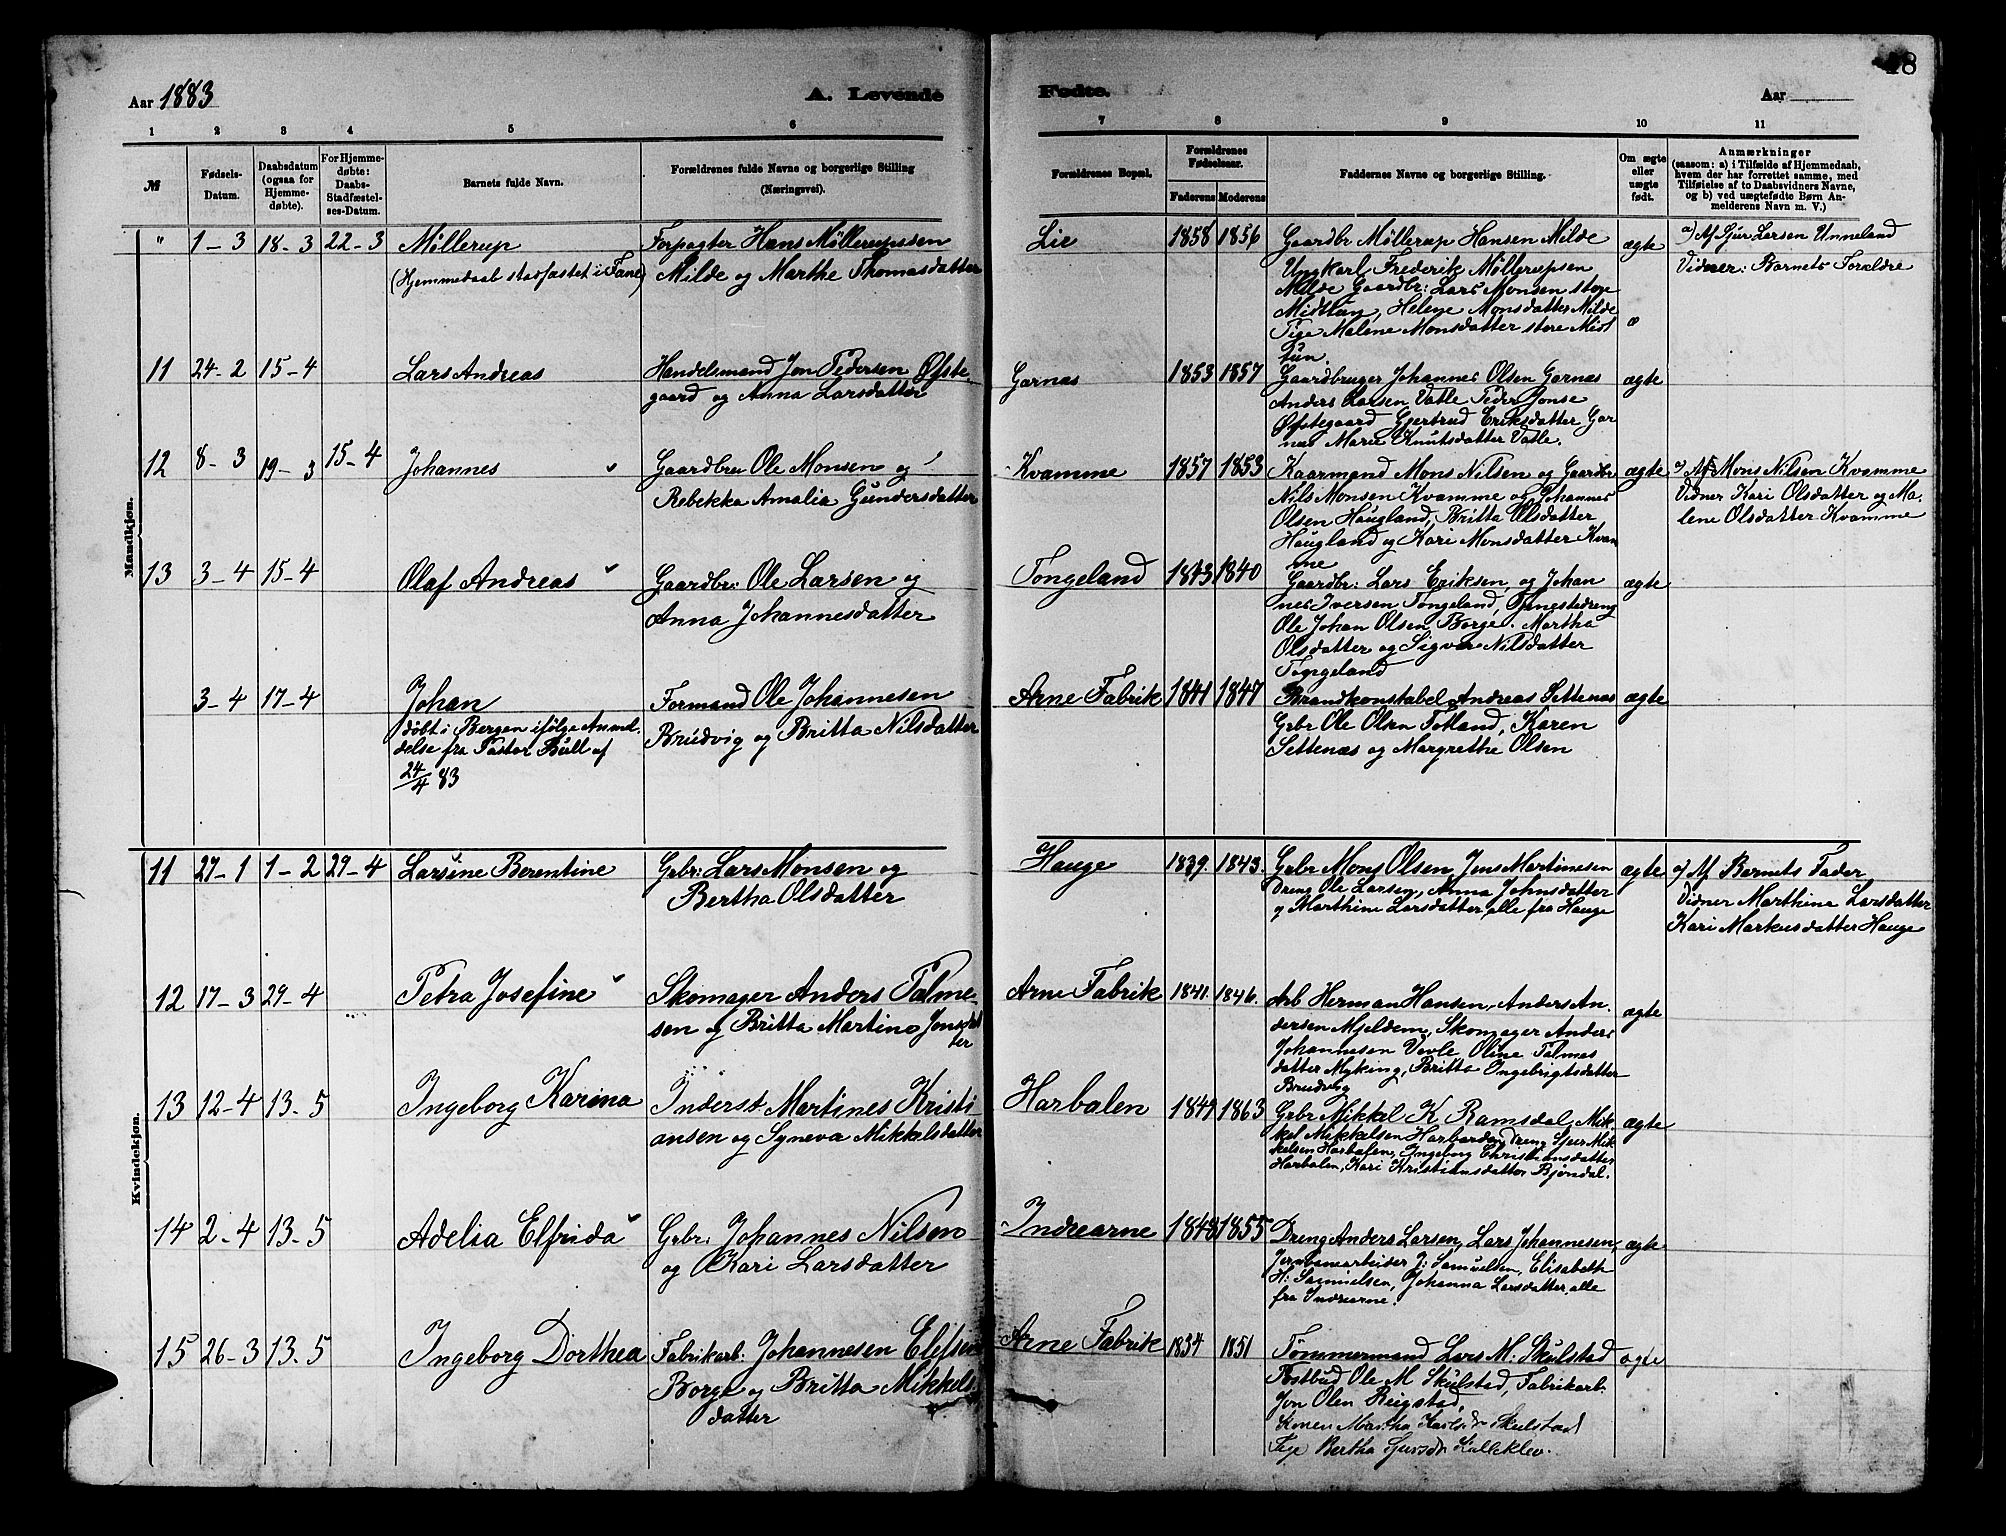 18
Aar 1883
A. Levende
Fødte.
Aar
1 2 3 4 5 6 7 8 9 10 11
№
Fødsels-
Datum.
Daabsdatum
(ogsaa for
Hjemme-
døbte).
For Hjemme-
døbte:
Daabs-
Stadfæstel-
ses-Datum.
Barnets fulde Navn.
Forældrenes fulde Navne og borgerlige Stilling
(Næringsvei).
Forældrenes Bopæl.
Forældrenes
Fødselsaar.
Faderens Moderens
Faddernes Navne og borgerlige Stilling.
Om ægte
eller
uægte
født.
Anmærkninger
(saasom: a) i Tilfælde af Hjemmedaab,
hvem der har forrettet samme, med
Tilføielse af to Daabsvidners Navne,
og b) ved uægtefødte Børn An-
melderens Navn m. V.)
Mandkjøn.
" 1-3 18-3 22-3
Møllerup
(Hjemmedaab stadfæstet i Fane)
Forpagter Hans Møllerupsen
Milde og Marthe Thomasdatter
Lie
1858 1856
Gaardbr Møllerup Hansen Milde
Ungkarl Frederik Møllerupsen
Milde Gaardbr: Lars Monsen store
Midttun, Helene Monsdatter Milde
Pige Malene Monsdatter store Midt
tun.
ægte
a) Af Sjur Larsen Unneland
Vidner: Barnets Forældre
11 24-2 15-4
Lars Andreas
Handelsmand Jon Pedersen Øfste-
gaard og Anna Larsdatter
Garnæs
1853 1857
Gaardbruger Johannes Olsen Garnæs
Anders Larsen Vatle Peder Jonse
Øfstegaard Gjertrud Eriksdatter Gar
næs Marie Knutsdatter Vatle.
ægte
12 8-3 19-3 15-4
Johannes
Gaardbr Ole Monsen og
Rebekka Amalia Gundersdatter
Kvamme
1857 1853
Kaarmand Mons Nilsen og Gaardbr
Nils Monsen Kvamme og Johannes
Olsen Haugland, Britta Olsdatter
Haugland og Kari Monsdatter Kvam
me
ægte
a) Af Mons Nilsen Kvamme
Vidner Kari Olsdatter og Ma-
lene Olsdatter Kvamme
13 3-4 15-4
Olaf Andreas
Gaardbr: Ole Larsen og
Anna Johannesdatter
Tongeland
1843 1840
Gaardbr: Lars Eriksen, og Johan
nes Iversen Tongeland, Tjenestedreng
Ole Johan Olsen Borge. Martha
Olsdatter og Sigva Nilsdatter
Tongeland
ægte
3-4 17-4
Johan
døbt i Bergen ifølge Anmel-
delse fra Pastor Bull af
24/4 83
Formand Ole Johannesen
Brudvig og Britta Nilsdatter
Arne Fabrik
1841 1847
Brandkonstabel Andreas Settenæs
Grbr Ole Olsn Totland, Karen
Settenæs og Margrethe Olsen
ægte
Kvindekjøn.
11 27-1 1-2 29-4
Larsine Berentine
Grbr: Lars Monsen og
Bertha Olsdatter
Hauge
1839. 1843.
Grbr Mons Olsen, Jens Martinesen
Dreng Ole Larsen, Anna Johnsdatter
og Marthine Larsdatter, alle fra Hauge
ægte
a) Af Barnets Fader
Vidner Marthine Larsdatter
Kari Markusdatter Hauge
12 17-3 29-4
Petra Josefine
Skomager Anders Palme-
sen og Britta Martine Jonsdat
ter
Arne Fabrik
1841. 1846.
Arb Herman Hansen, Anders An-
dersen Mjeldem, Skomager Anders
Johannesen Vevle, Oline Palmes
datter Myking, Britta Ingebrigtsdatter
Brudvig
ægte
13 12-4 13-5
Ingeborg Karina
Inderst Martines Kristi
ansen og Syneva Mikkelsdatter
Harbalen
1849 1863
Grbr Mikkel K Ramsdal, Mik-
kel Mikkelsen, Dreng Sjur Mik
kelsen Harbalen, Ingeborg Christiansdatter
Harbalen, Kari Kristiansdatter Bjøndal.
ægte
14 2-4 13-5
Adelia Elfrida
Grbr: Johannes Nilsen
og Kari Larsdatter
Indrearne
1848 1855
Dreng Anders Larsen, Lars Johannesen,
Jernbanearbeider J: Samuelsen, Elisabeth
H: Samuelsen, Johanna Larsdatter, alle
fra Indrearne.
ægte
15 26-3 13-5
Ingeborg Dorthea
Fabrikarb. Johannesen Elefsen
Borge og Britta Mikkels-
datter
Arne Fabrik
1834 1851
Tømmermand Lars M. Skulstad
Postbud Ole M Skulstad, Fabrikarb.
Jon Olen Reigstad,
Konen Martha Skulstad
Pige Bertha Sjursdr Kalleklev.
ægte